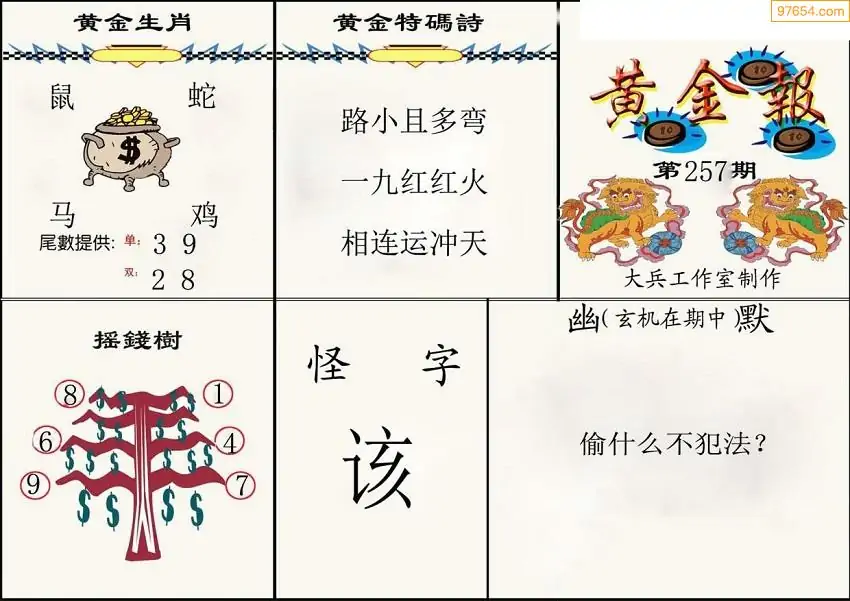 97654.com
黄金生肖
鼠 蛇
$
马 鸡
尾數提供: 单: 3 9
双: 2 8
黄金特碼詩
路小且多弯
一九红红火
相连运冲天
黄金報
10
10
10
第257期
大兵工作室制作
摇錢樹
8 1
6 4
9 7
怪 字
该
幽(玄机在期中)默
偷什么不犯法?